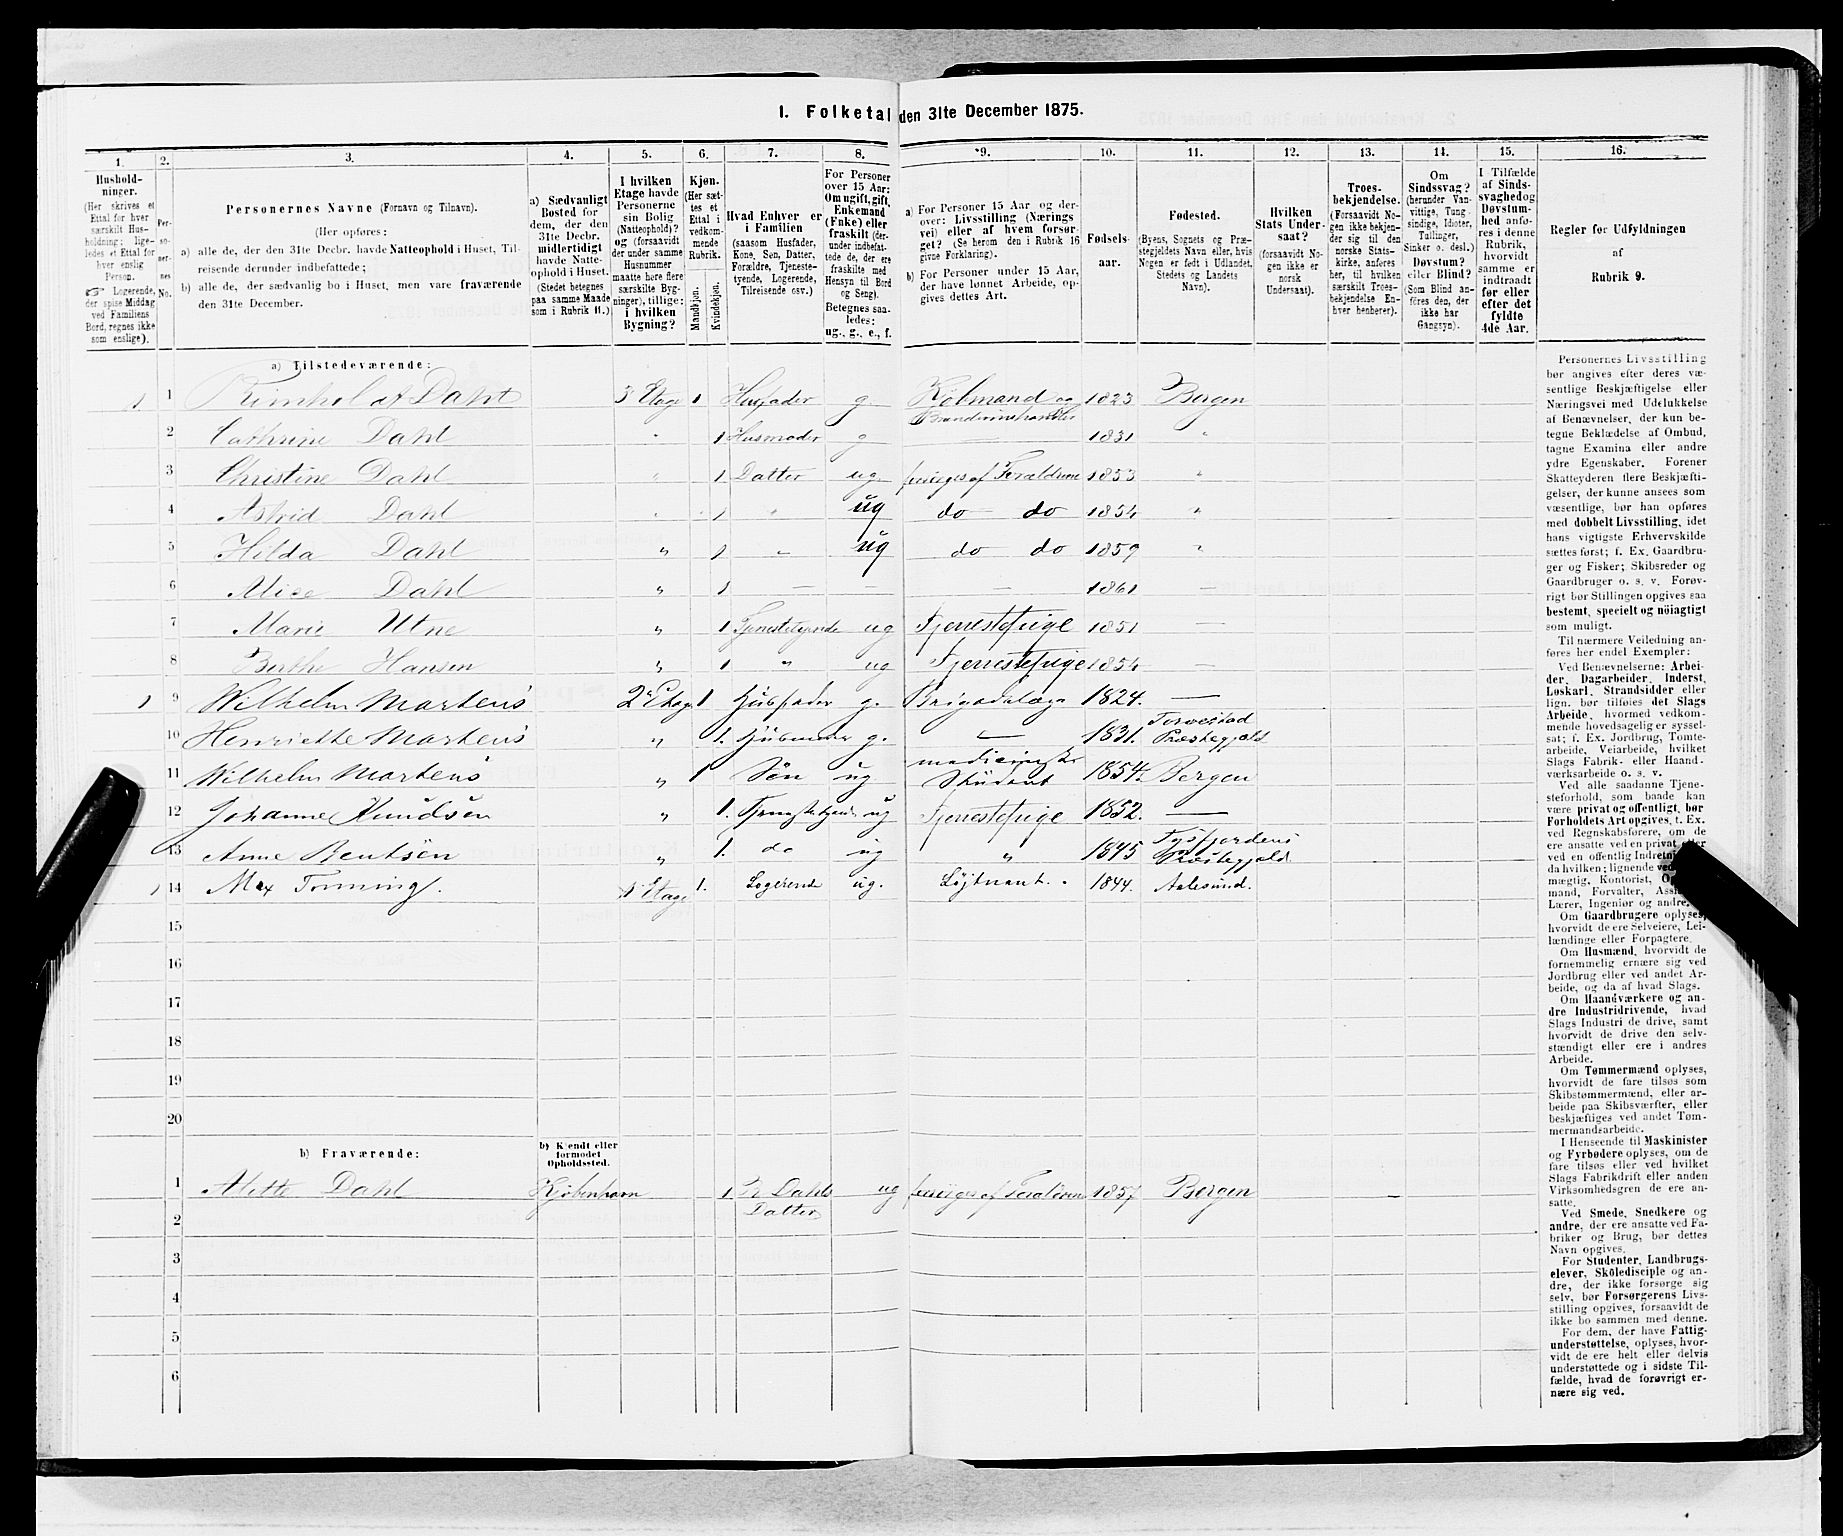 1. Folketal den 31te December 1875.
1. 2. 3. 4. 5. 6. 7. 8. 9. 10. 11. 12. 13. 14. 15. 16.
Hushold-
ninger.
(Her skrives et
Ettal for hver
særskilt Hus-
holdning; lige-
ledes et Ettal for
hver enslig
Person.
☞ Logerende,
der spise Middag
ved Familiens
Bord, regnes ikke
som enslige).
Per-
so-
ner-
nes
No.
Personernes Navne (Fornavn og Tilnavn).
(Her opføres:
a) alle de, der den 31te Decbr. havde Natteophold i Huset, Til-
reisende derunder indbefattede;
b) alle de, der sædvanlig bo i Huset, men vare fraværende
den 31te December.
a) Sædvanligt
Bosted for
dem, der den
31te Decbr.
midlertidigt
havde Natte-
ophold i Huset.
(Stedet betegnes
paa samme Maade
som i Rubrik 11.)
I hvilken
Etage havde
Personerne
sin Bolig
(Natteophold)?
og (forsaavidt
der under samme
Husnummer
maatte høre flere
særskilte Byg-
ninger), tillige:
i hvilken
Bygning?
Kjøn.
(Her sæt-
tes et
Ettal i
vedkom-
mende
Rubrik.
Mandkjøn.
Kvindekjøn.
Hvad Enhver er
i Familien
(saasom Husfader,
Kone, Søn, Datter,
Forældre, Tjeneste-
tyende, Logerende,
Tilreisende osv.)
For Personer
over 15 Aar:
Om ugift, gift,
Enkemand
(Enke) eller
fraskilt (der-
under indbefat-
tede de, der ere
fraskilte med
Hensyn til Bord
og Seng).
Betegnes saa-
ledes:
ug., g., e., f.
a) For Personer 15 Aar og der-
over: Livsstilling (Nærings
vei) eller af hvem forsør-
get? (Se herom den i Rubrik 16
givne Forklaring).
b) For Personer under 15 Aar,
der have lønnet Arbeide, op-
gives dettes Art.
Fødsels-
aar.
Fødested.
(Byens, Sognets og Præ-
stegjeldets Navn eller, hvis
Nogen er født i Udlandet,
Stedets og Landets
Navn).
Hvilken
Stats Under-
saat?
(forsaavidt No-
gen ikke er
norsk
Undersaat).
Troes-
bekjendelse.
(Forsaavidt No-
gen ikke bekjen-
der sig til den
norske Stats-
kirke, anføres
her, til hvilken
særskilt Troes-
bekjendelse En-
hver henhører).
Om
Sindssvag?
(herunder Van-
vittige, Tung
sindige, Idioter,
Tullinger,
Sinker o. desl.)
Døvstum?
eller Blind?
(Som Blind an-
føres den, der
ikke har
Gangsyn).
I Tilfælde
af Sinds-
svaghed og
Døvstum-
hed anfø-
res i denne
Rubrik,
hvorvidt
samme er
indtraadt
før eller
efter det
fyldte
4de Aar.
Regler for Udfyldningen
af
Rubrik 9.
a) Tilstedeværende:
1 1 Reinholdt Dahl 3 Etage 1 Husfader g. Kjøbmand og 1823 Bergen
Brændevinshandler
2 Cathrine Dahl " 1 Husmoder g — 1831 "
3 Christine Dahl " 1 Datter ug. forsørges af Forældrene 1853 "
4 Astrid Dahl " 1 " ug do do 1854 "
5 Hilda Dahl " 1 " ug do do 1859 "
6 Alice Dahl " 1 — — — 1861 —
7 Marie Utne " 1 Tjenestetyende ug Tjenestepige 1851 —
8 Berthe Hansen " 1 " ug Tjenestepige 1854 —
1 9 Wilhelm Martens 2 Etage 1 Husfader g. Brigadelæge 1824. —
10 Henriette Martens " 1. Husmoder g. — 1831. Torvestad
Præstegjeld
11 Wilhelm Martens " 1 Søn ug medicinsk
Student 1854. Bergen
12 Johanne Knudsen " 1. Tjenestetyende ug Tjenestepige 1852. —
13 Anne Bentsen " 1. do ug " 1845 Tysfjordens
Præstegjeld
1 14 Max Tonning. 1 Etage 1. Logerende ug. Løjtnant. 1844. Aalesund.
15
16
17
18
19
20
b) Fraværende:
b) Kjendt eller
formodet
Opholdssted.
1 Alette Dahl Kjøbenhavn 1 R Dahls ug forsørges af Forældrene 1857 Bergen
Datter
2
3
4
5
6
Personernes Livsstilling
bør angives efter deres væ-
sentlige Beskjæftigelse eller
Næringsvei med Udelukkelse
af Benævnelser, der kun be-
tegne Beklædelse af Ombud,
tagne Examina eller andre
ydre Egenskaber. Forener
Skatteyderen flere Beskjæfti-
gelser, der kunne ansees som
væsentlige, bør han opføres
med dobbelt Livsstilling, idet
hans vigtigste Erhvervskilde
sættes først; f. Ex. Gaardbru-
ger og Fisker; Skibsreder og
Gaardbruger o. s. v. Forøv-
rigt bør Stillingen opgives saa
bestemt, specielt og nøiagtigt
som muligt.
Til nærmere Veiledning an-
føres her endel Exempler:
Ved Benævnelserne: Arbei-
der, Dagarbeider, Inderst,
Løskarl, Strandsidder eller
lign. bør tilføies det Slags
Arbeide, hvormed vedkom-
mende hovedsagelig er syssel-
sat; f. Ex. Jordbrug, Tomte-
arbeide, Veiarbeide, hvilket
Slags Fabrik- eller Haand-
værksarbeide o. s. v.
Ved alle saadanne Tjene-
steforhold, som baade kan
være privat og offentligt, bør
Forholdets Art opgives, t. Ex.
ved Regnskabsførere, om de
ere ansatte ved en privat eller
ved en offentlig Indretni
da hvilken; lignende ved
mægtig, Kontorist, O
mand, Forvalter, Ass
Lærer, Ingeniør og andre.
Om Gaardbrugere oplyses,
hvorvidt de ere Selveiere, Lei-
lændinge eller Forpagtere.
Om Husmænd, hvorvidt de
fornemmelig ernære sig ved
Jordbrug eller ved andet Ar-
beide, og da af hvad Slags.
Om Haandværkere og an-
dre Industridrivende, hvad
Slags Industri de drive, samt
hvorvidt de drive den selv-
stændigt eller ere i andres
Arbeide.
Om Tømmermænd oplyses,
hvorvidt de fare tilsøs som
Skibstømmermænd, eller ar-
beide paa Skibsværfter, eller
beskjæftiges ved andet Tøm-
mermandsarbeide.
I Henseende til Maskinister
og Fyrbødere oplyses, om de
fare tilsøs eller ved hvilket
Slags Fabrikdrift eller anden
Virksomhedsgren de ere an-
satte.
Ved Smede, Snedkere og
andre, der ere ansatte ved Fa-
briker og Brug, bør dettes
Navn opgives.
For Studenter, Landbrugs-
elever, Skoledisciple og an-
dre, der ikke forsørge sig
selv, bør Forsørgerens Livs-
stilling opgives, forsaavidt de
ikke bo sammen med denne.
For dem, der have Fattig-
understøttelse, oplyses, hvor-
vidt de ere helt eller delvis
understøttede og i sidste Til-
fælde, hvad de forøvrigt er-
nære sig ved.